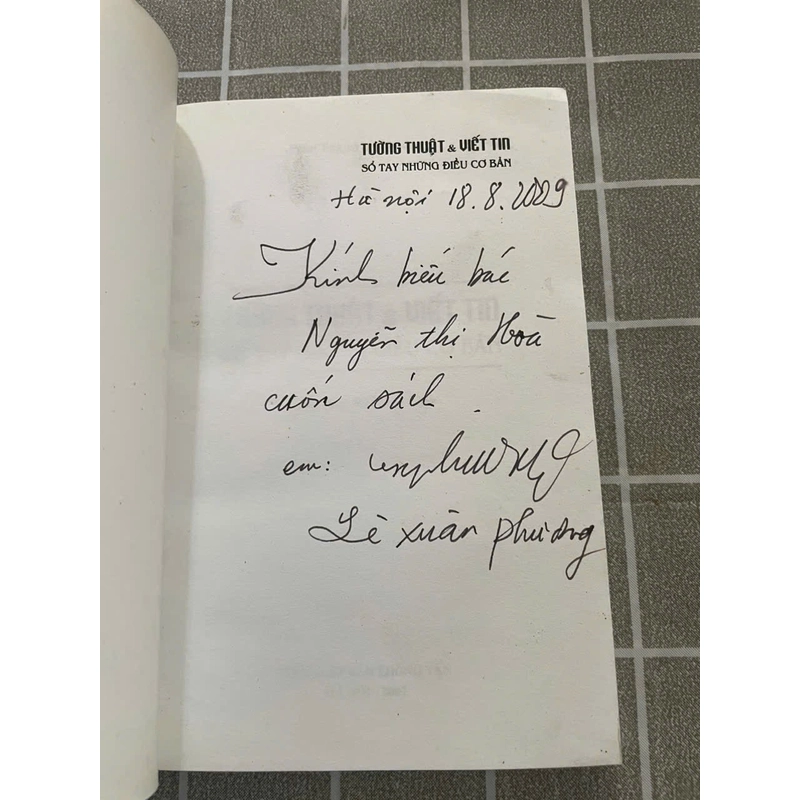 TƯỜNG THUẬT & VIẾT TIN
SỔ TAY NHỮNG ĐIỀU CƠ BẢN
Hà nội 18.8.2009
Kính biếu bác
Nguyễn thị Hoà
cuốn sách.
em:
Lê xuân phương